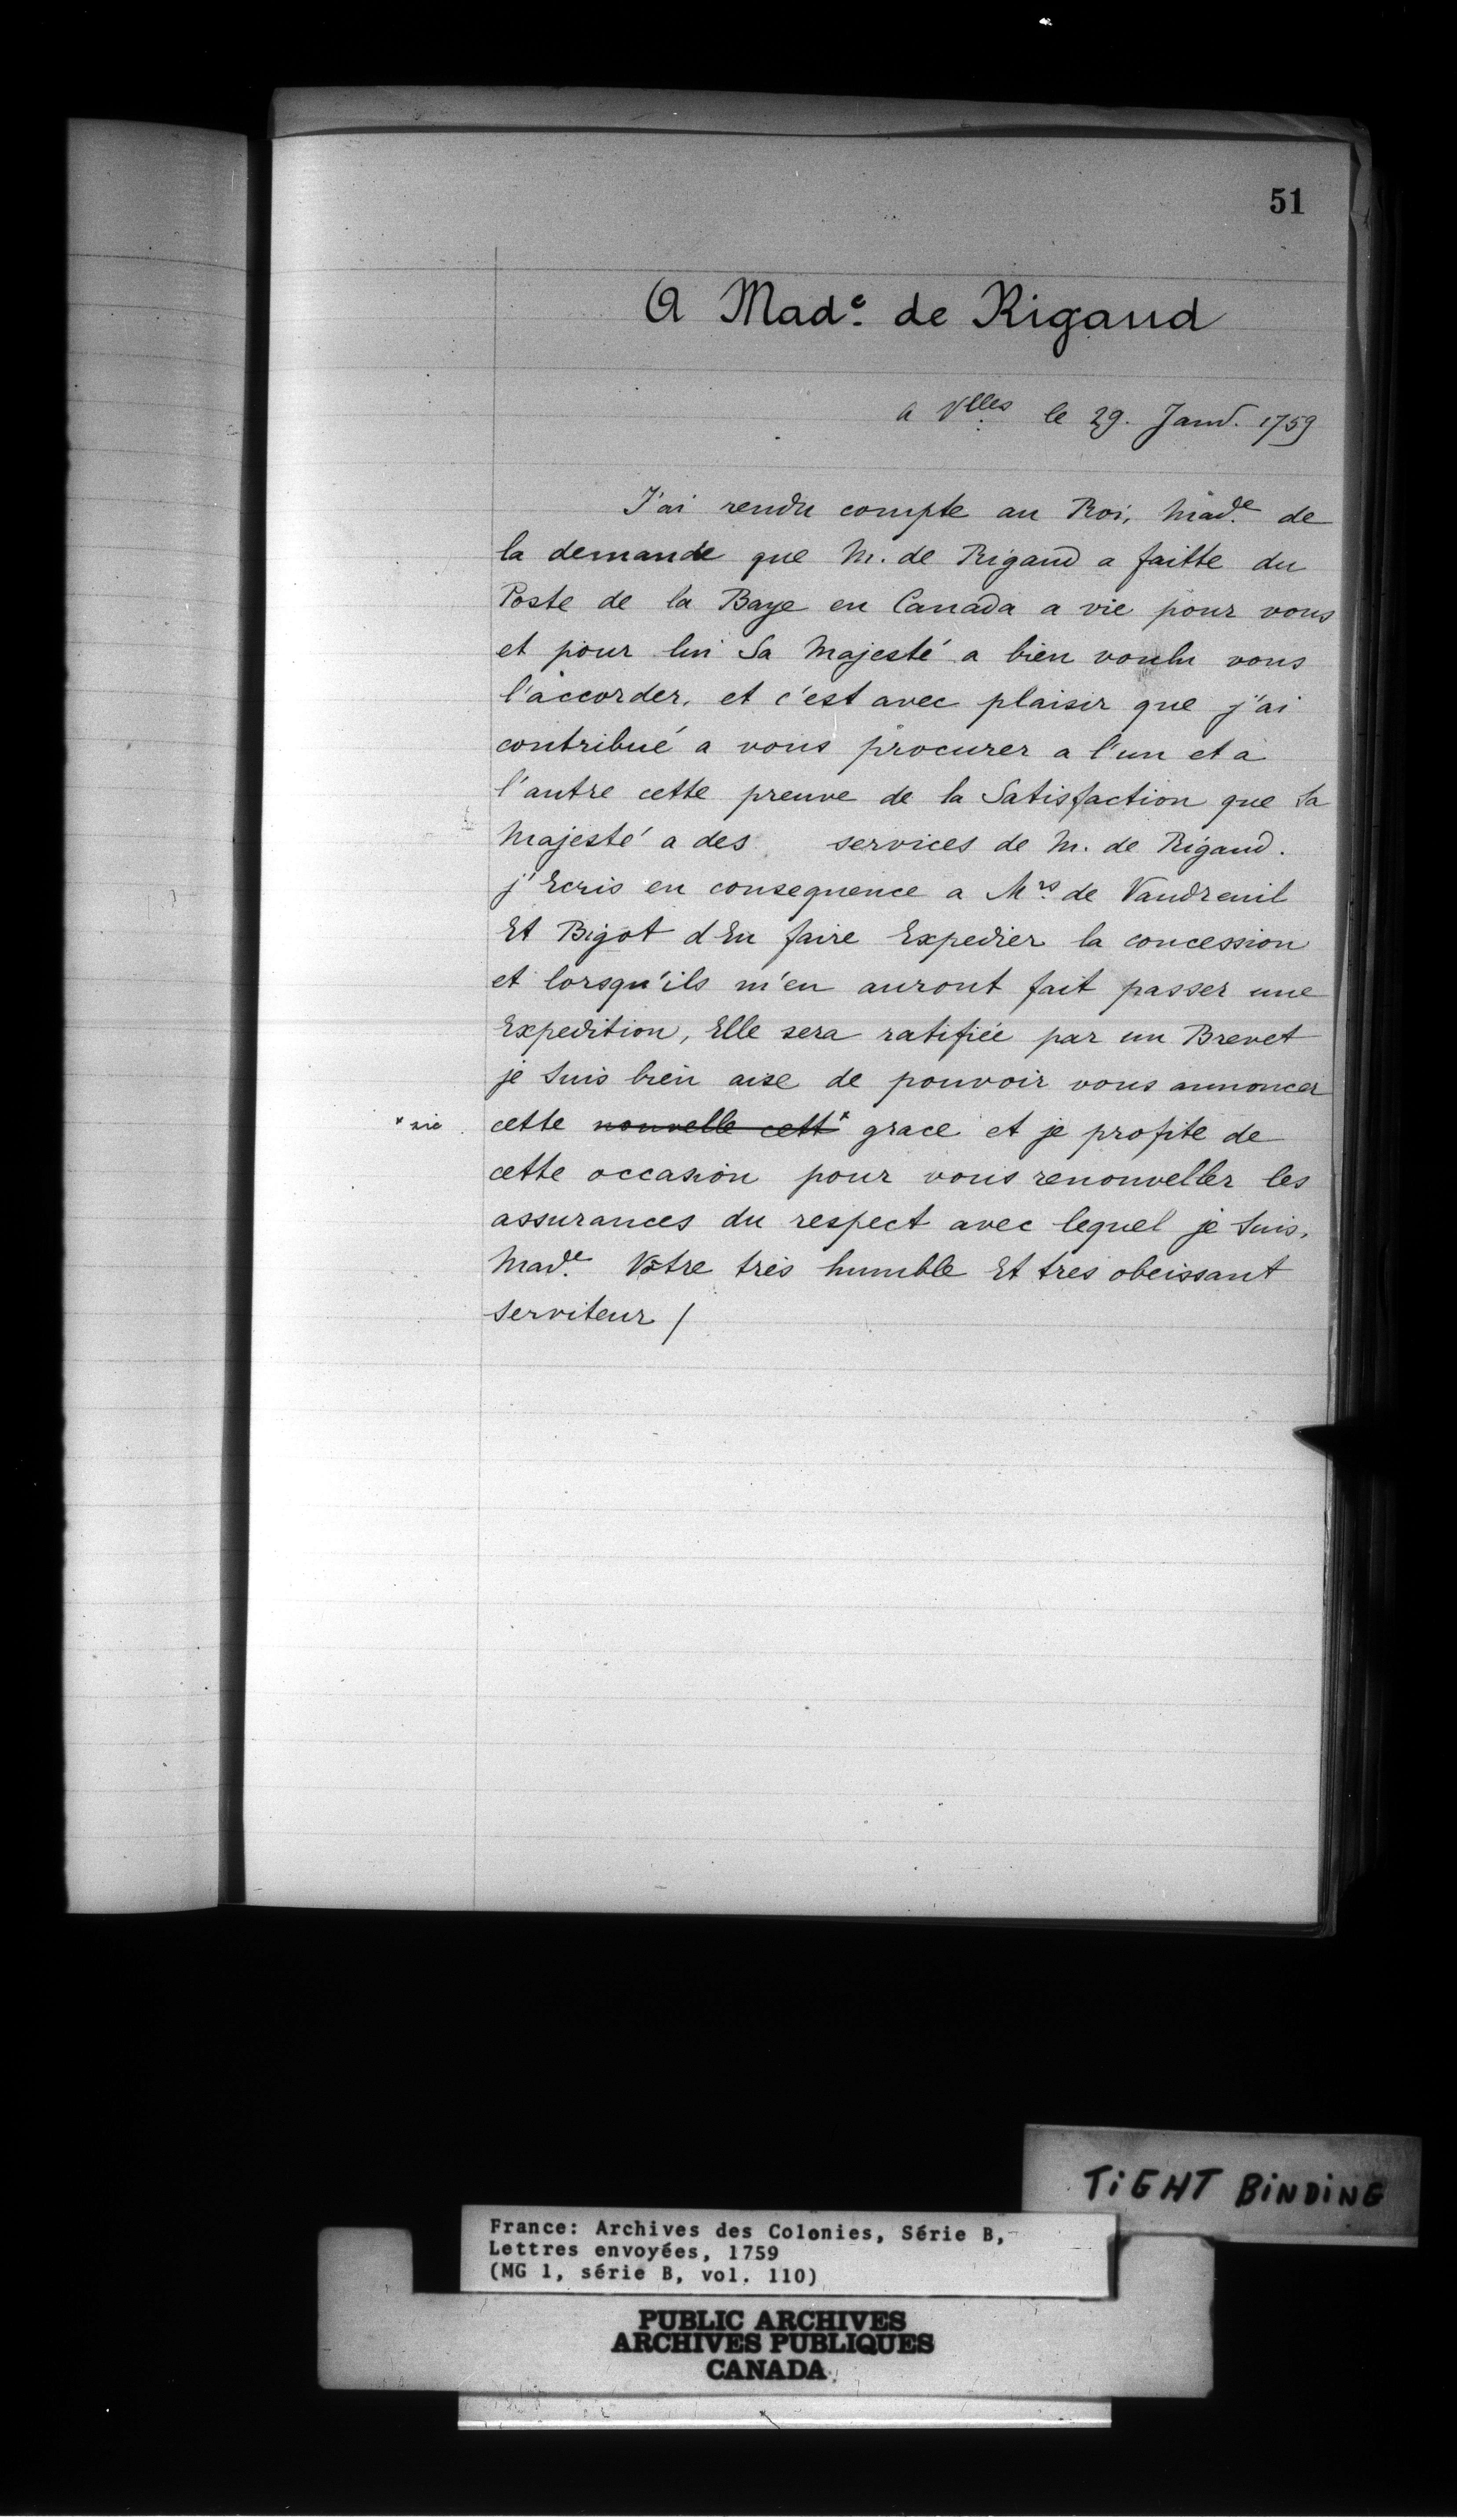 51
A Mad.e de Rigaud
a Vlles le 29. Janv. 1759
J'ai rendu compte au Roi, Mad.e de
la demande que M. de Rigaud a faitte du
Poste de la Baye en Canada a vie pour vous
et pour lui Sa Majesté a bien voulu vous
l'accorder, et c'est avec plaisir que j'ai
contribué a vous procurer a l'un et à
l'autre cette preuve de la Satisfaction que Sa
Majesté a des services de M. de Rigaud.
j'Ecris en consequence a Mrs. de Vaudreuil
Et Bigot d'En faire Expedier la concession
et lorsqu'ils m'en auront fait passer une
Expedition, Elle sera ratifiée par un Brevet
je Suis bien aise de pouvoir vous annoncer
* sic cette nouvelle cett* grace et je profite de
cette occasion pour vous renouveller les
assurances du respect avec lequel je Suis,
Mad.e Votre très humble Et tres obeissant
Serviteur /
TIGHT BINDING
France: Archives des Colonies, Série B,
Lettres envoyées, 1759
(MG 1, série B, vol. 110)
PUBLIC ARCHIVES
ARCHIVES PUBLIQUES
CANADA